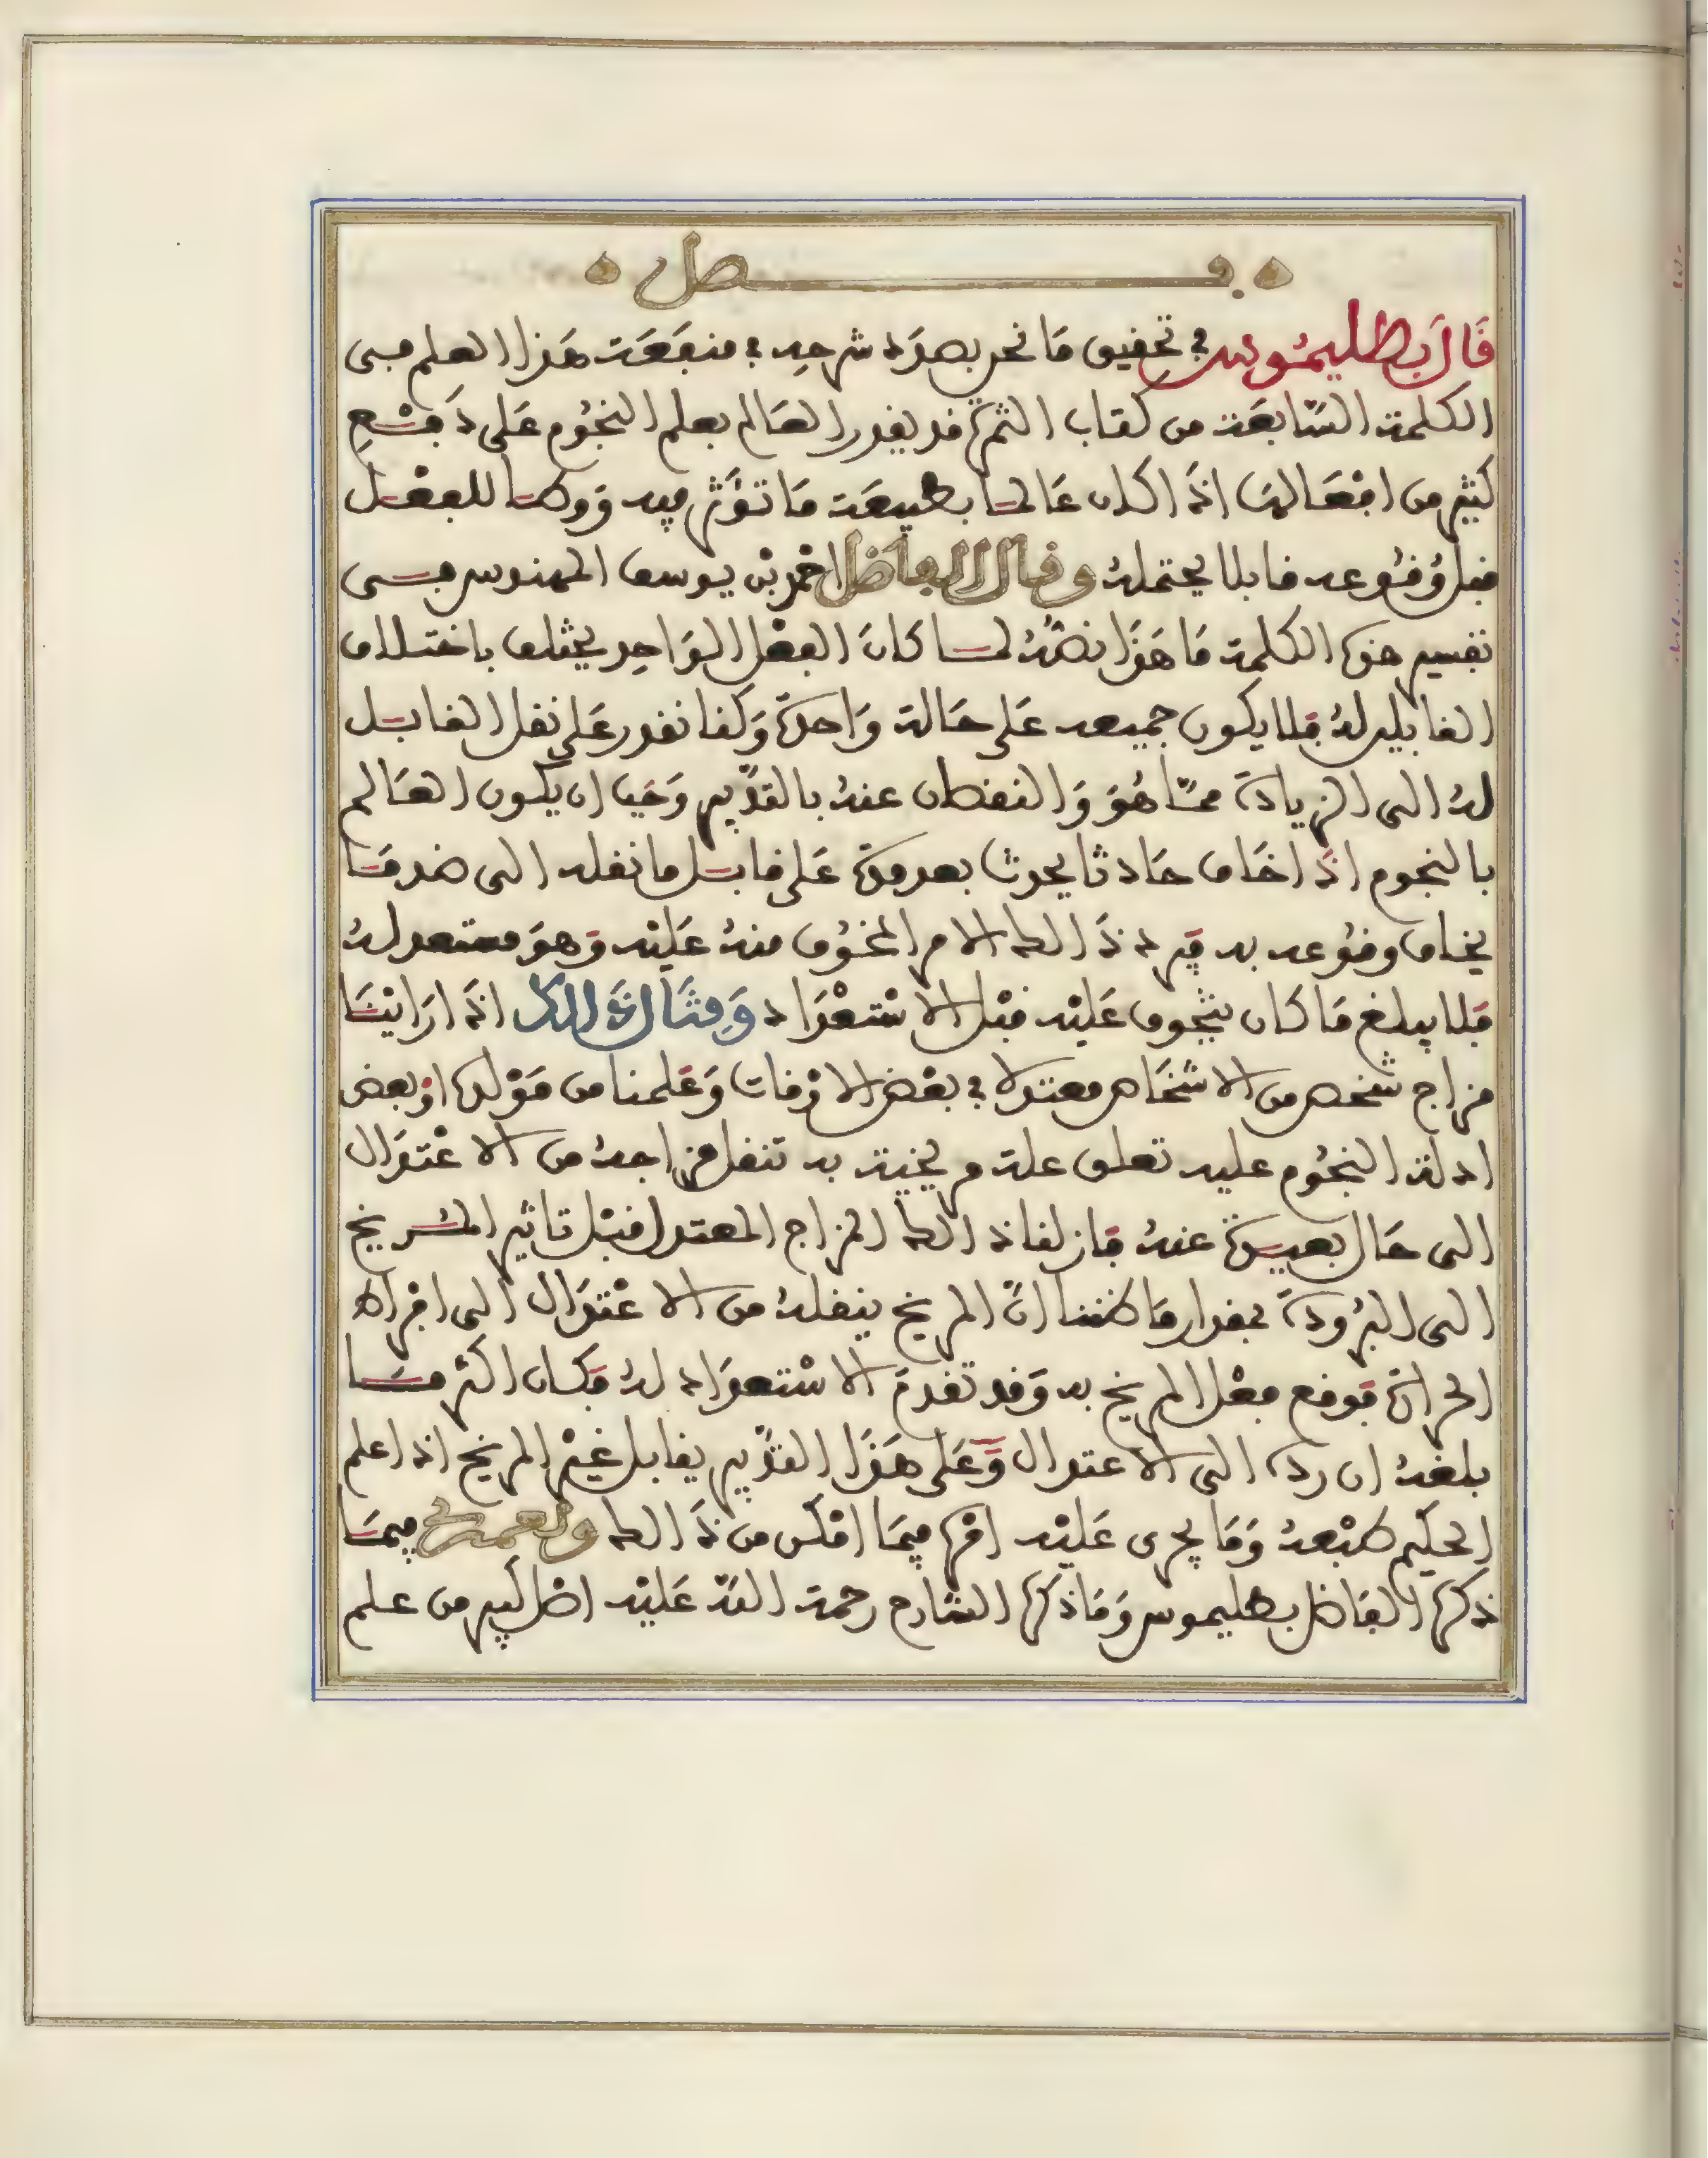 فصل
قال بطليموس في تحقيق ما نحن بصدد شرحه في منفعة هذا العلم في
الكلمة السابعة من كتاب الثمرة قد يقدر العالم بعلم النجوم على دفع
كثير من افعالها اذا كان عالما بطبيعة ما تؤثر فيه ووطا للفعل
قبل وقوعه قابلا يحتمله وقال الفاضل احمد بن يوسف المهندس في
تفسير هذه الكلمة ما هذا نصه لما كان الفعل الواحد يختلف باختلاف
القابلين له فلا يكون جميعه على حالة واحدة وكنا نقدر على نقل القابل
له الى الزيادة مما هو والنقصان عنه بالتدبير وجب ان يكون العالم
بالنجوم اذا خاف حادثا يحدث بعد مدة على قابل ما نقله الى ضد ما
يخاف وقوعه به فيرد ذالك الامر المخوف منه عليه وهو مستعد له
فلا يبلغ ما كان يتخوف عليه قبل الاستعداد ومثال ذالك اذا راينا
مزاج شخص من الاشخاص معتدلا في بعض الاوقات وعلمنا من مولده او بعض
ادلة النجوم عليه تعلق علة مريخية به تنقل مزاجه من الاعتدال
الى حال بعيدة عنه فان لقا ذالك المزاج المعتدل قبل تاثير المريخ
الى البرودة بمقدار ما ظننا ان المريخ ينقله من الاعتدال الى افراط
الحرارة فوقع فعل المريخ به وقد تقدم الاستعداد له فكان اكثر ما
بلغه ان رده الى الاعتدال وعلى هذا التدبير يقابل غير المريخ اذا علم
الحكيم طبعه وما يجري عليه امره فيما امكن من ذالك ونعم فيما
ذكره الفاضل بطليموس وما ذكره الشارح رحمة الله عليه اصل كبير من علم